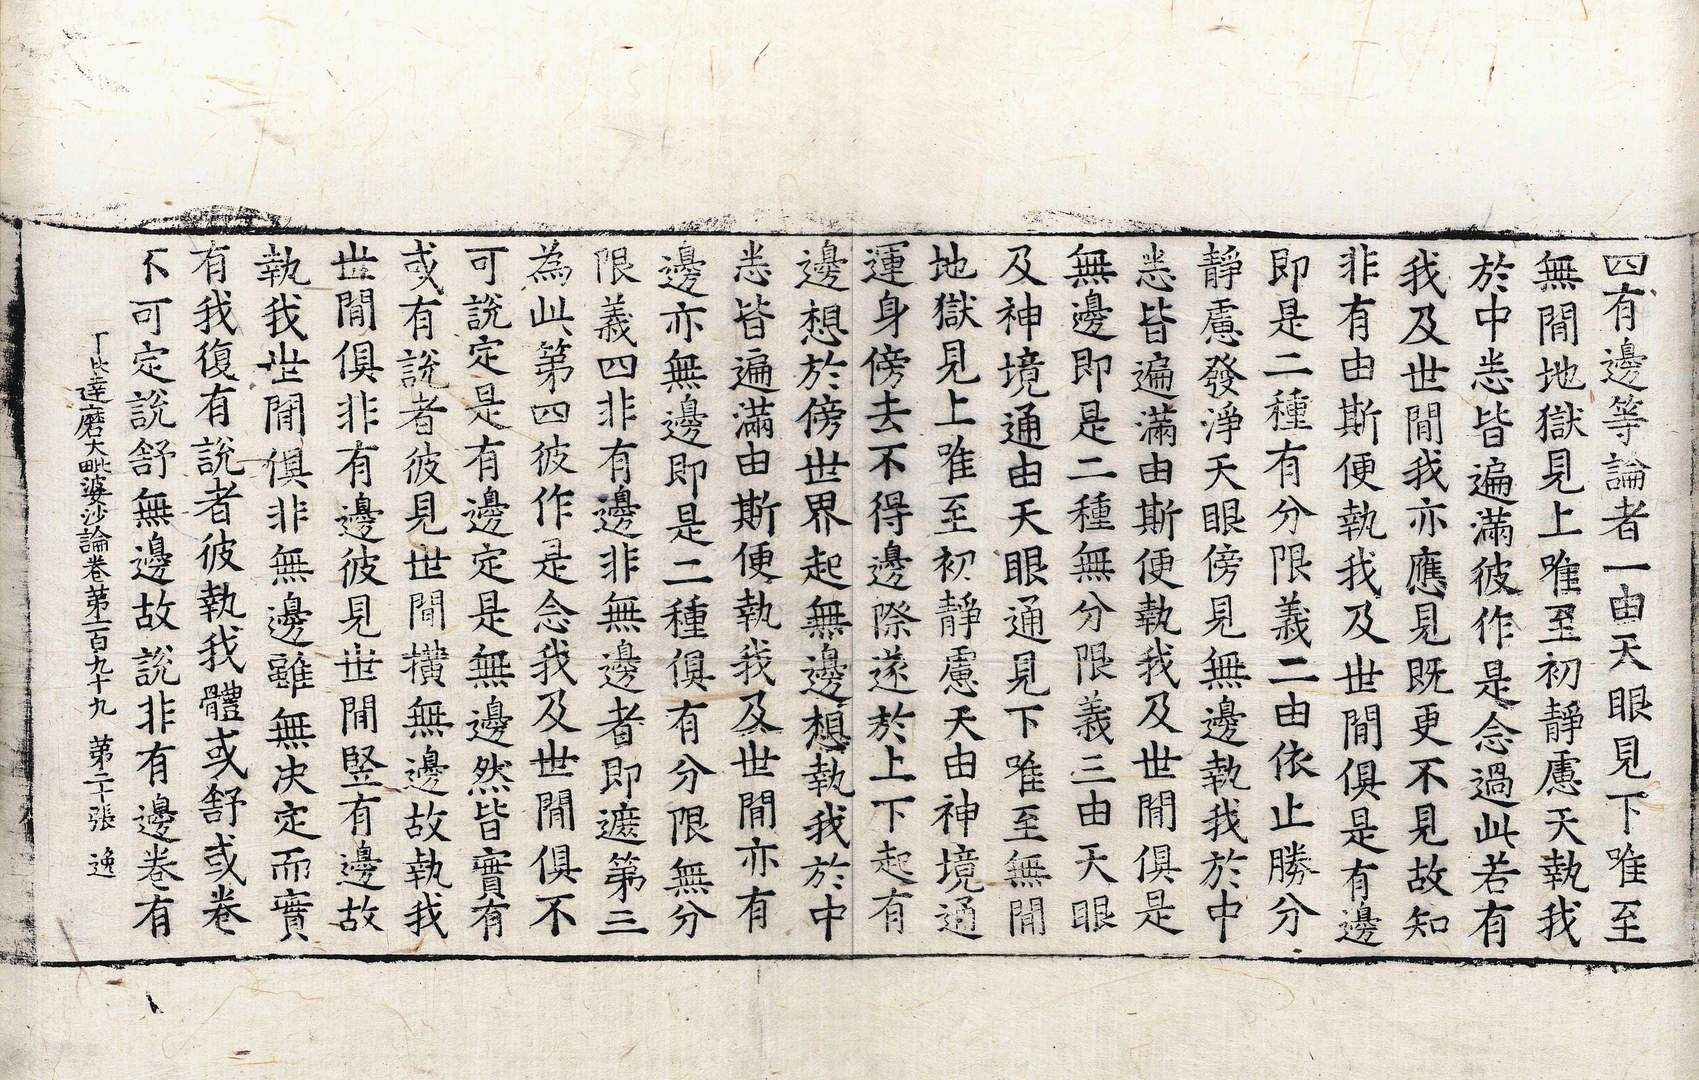 四有邊等論者一由天眼見下唯至
無間地獄見上唯至初靜慮天執我
於中悉皆遍滿彼作是念過此若有
我及世間我亦應見旣更不見故知
非有由斯便執我及世間俱是有邊
即是二種有分限義二由依止勝分
靜慮發淨天眼傍見無邊執我於中
悉皆遍滿由斯便執我及世間俱是
無邊即是二種無分限義三由天眼
及神境通由天眼通見下唯至無間
地獄見上唯至初靜慮天由神境通
運身傍去不得邊際遂於上下起有
邊想於傍世界起無邊想執我於中
悉皆遍滿由斯便執我及世間亦有
邊亦無邊即是二種俱有分限無分
限義四非有邊非無邊者即遮第三
為此第四彼作是念我及世間俱不
可說定是有邊定是無邊然皆實有
或有說者彼見世間橫無邊故執我
世間俱非有邊彼見世間竪有邊故
執我世間俱非無邊雖無決定而實
有我復有說者彼執我體或舒或卷
不可定說舒無邊故說非有邊卷有
達磨大毗婆沙論卷第一百九十九 第二十張 逸